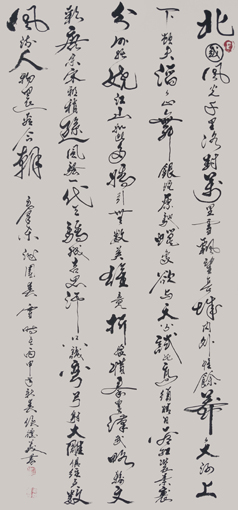 北國風光千里冰封萬里雪飄望長城内外惟餘莽莽大河上
下頓失滔滔山舞銀蛇原馳蠟象欲與天公試比高須晴日看紅裝素裹
分外妖嬈江山如此多嬌引無數英雄競折腰惜秦皇漢武略輸文
彩唐宗宋祖稍遜風騷一代天驕成吉思汗只識彎弓射大雕俱往矣數
風流人物還看今朝 毛澤東 沁園春 雪 丙申年